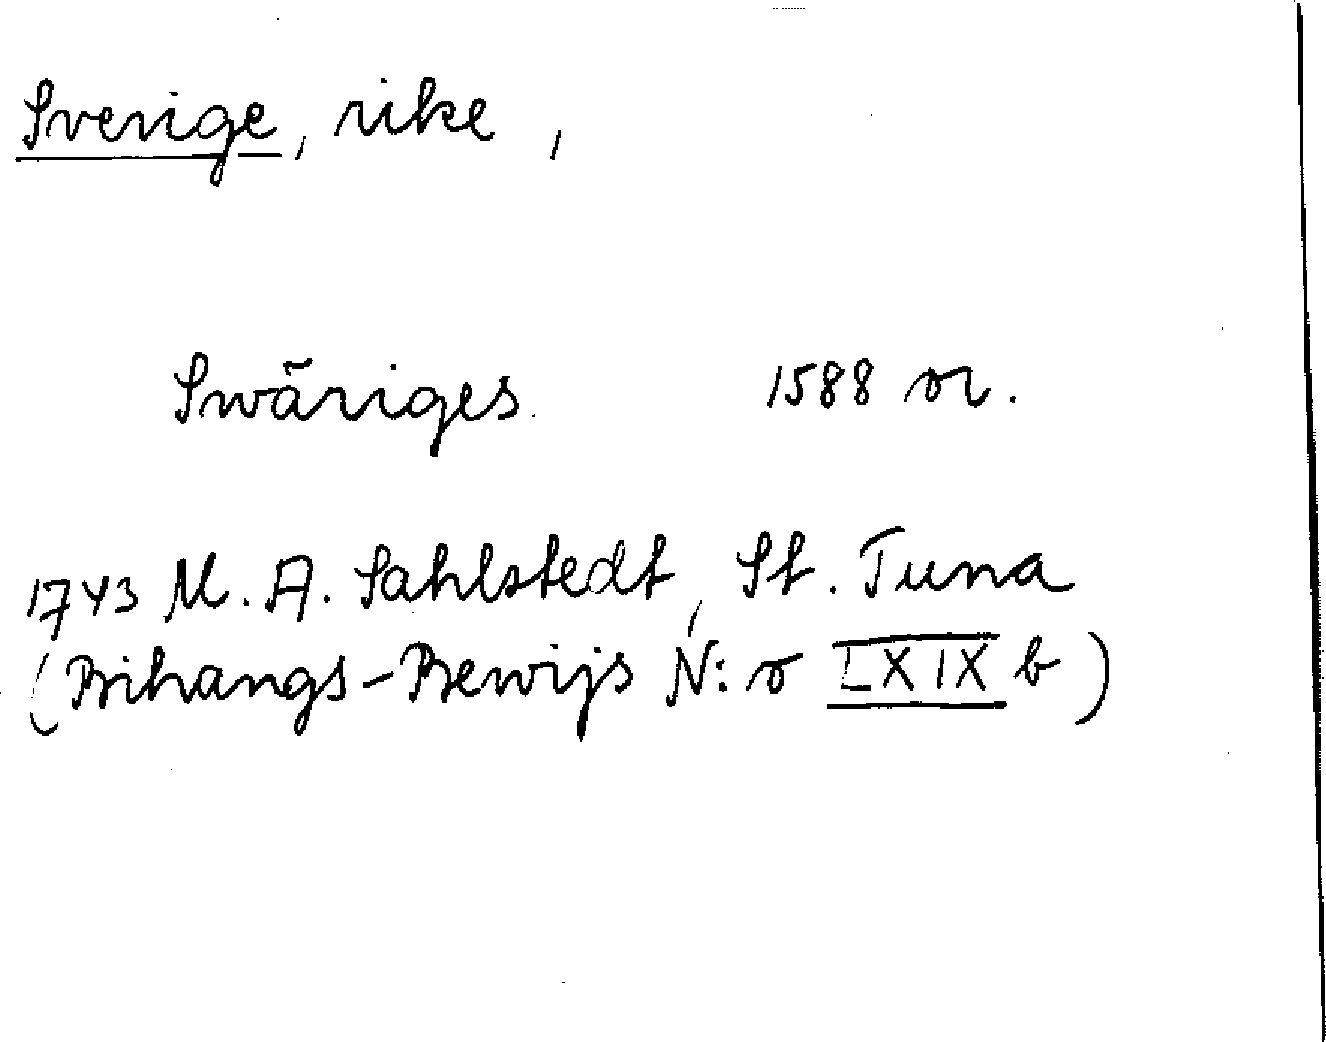 Sverige, rike,
Swäriges. 1588 or.
1743 M. A. Sahlstedt, St. Tuna
(Bihangs-Bewijs N:o LXIX b)